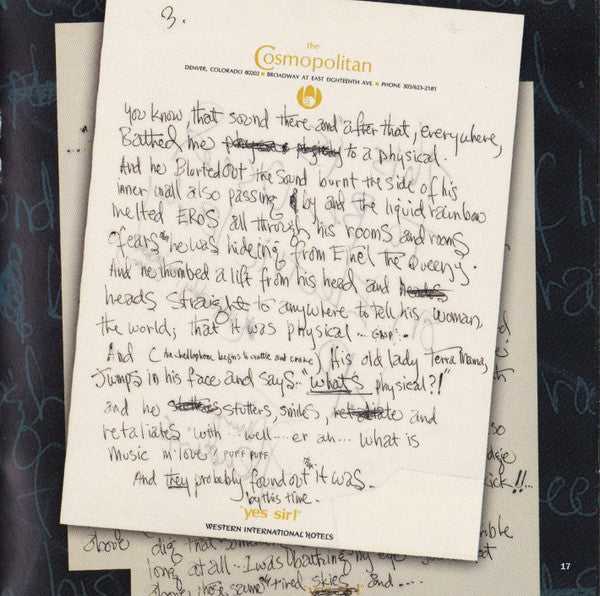 3.
the
Cosmopolitan
DENVER, COLORADO 80202 • BROADWAY AT EAST EIGHTEENTH AVE. • PHONE 303/623-2181
You know that sound there and after that, everywhere,
Bathed me to a physical.
And he Blurted out the sound burnt the side of his
inner wall also passing by and the liquid rainbow
melted EROS all through his rooms and rooms
of fears he was hideing from Ethel the Queeny.
And he thumbed a lift from his head and
heads straight to anywhere to tell his woman,
the world; that it was physical... GASP.
And ( the cellophone begins to crattle and croke ) His old lady Terra Mama,
Jumps in his face and says.. "whats physical?!"
and he stutters, smiles, and
retaliates with... well.... er ah... what is
music m' love PUFF PUFF
And they probably found out it was.
by this time.
"yes sir!"
WESTERN INTERNATIONAL HOTELS
so
kick!!..
above
dig that
long at all... I was Bathing my eye
above, those same tired skies and....
17